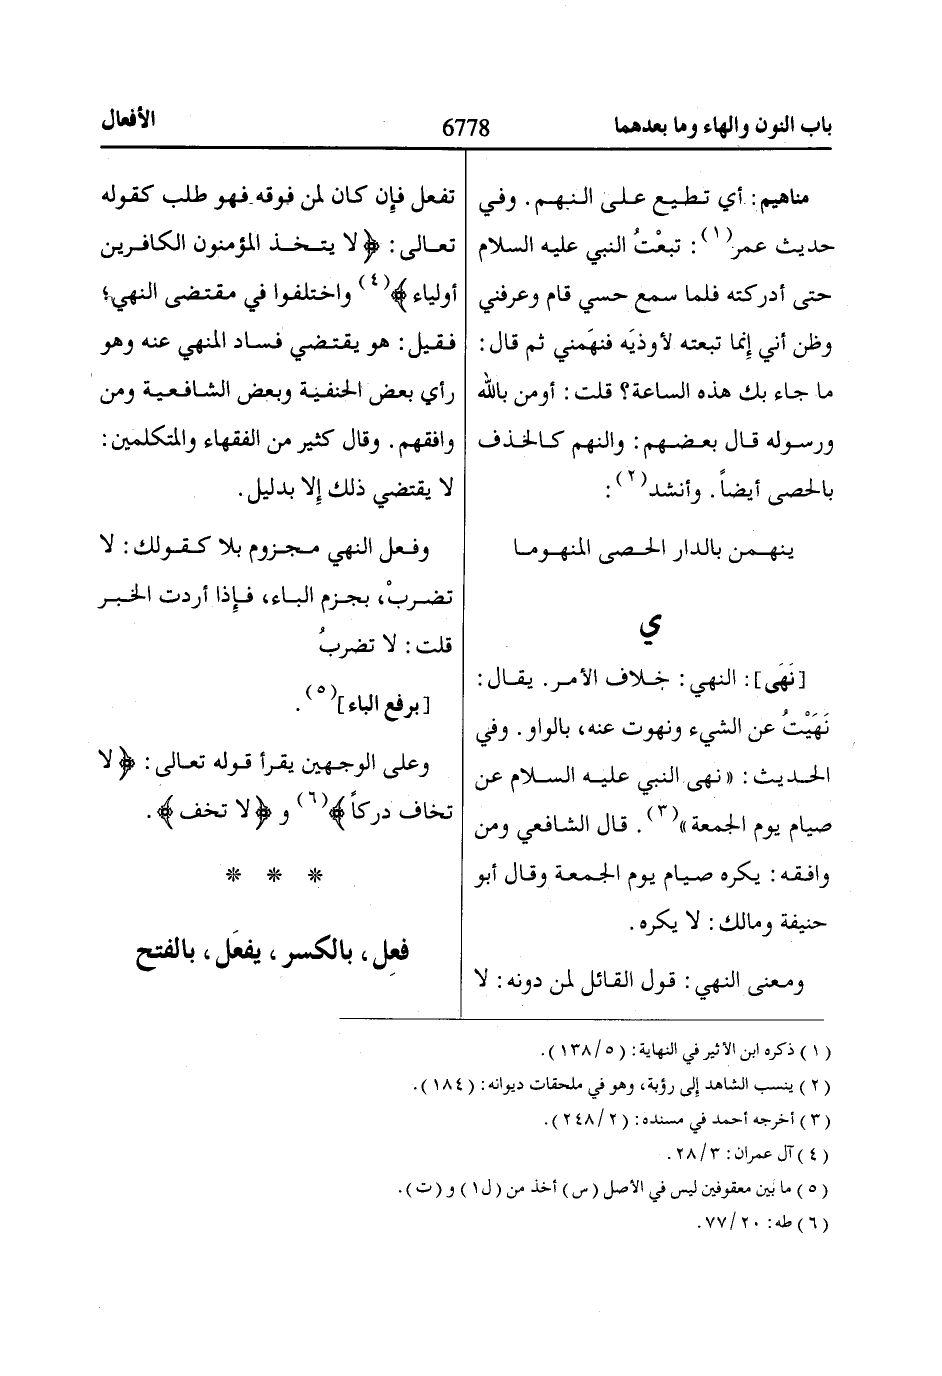 باب النون والهاء وما بعدهما
6778
الأفعال
مناهيم: أي تطيع على النهم. وفي
حديث عمر(١): تبعْتُ النبي عليه السلام
حتى أدركته فلما سمع حسي قام وعرفني
وظن أني إنما تبعته لأوذيَه فنهَمني ثم قال:
ما جاء بك هذه الساعة؟ قلت: أومن بالله
ورسوله قال بعضهم: والنهم كالخذف
بالحصى أيضاً. وأنشد(٢):
ينهمن بالدار الحصى المنهوما
ي
[نَهَى]: النهي: خلاف الأمر. يقال:
نَهَيْتُ عن الشيء ونهوت عنه، بالواو. وفي
الحديث: «نهى النبي عليه السلام عن
صيام يوم الجمعة»(٣). قال الشافعي ومن
وافقه: يكره صيام يوم الجمعة وقال أبو
حنيفة ومالك: لا يكره.
ومعنى النهي: قول القائل لمن دونه: لا
تفعل فإن كان لمن فوقه فهو طلب كقوله
تعالى: ﴿لا يتخذ المؤمنون الكافرين
أولياء﴾(٤) واختلفوا في مقتضى النهي؛
فقيل: هو يقتضي فساد المنهي عنه وهو
رأي بعض الحنفية وبعض الشافعية ومن
وافقهم. وقال كثير من الفقهاء والمتكلمين:
لا يقتضي ذلك إلا بدليل.
وفعل النهي مجزوم بلا كقولك: لا
تضربْ، بجزم الباء، فإذا أردت الخبر
قلت: لا تضربُ
[برفع الباء](٥).
وعلى الوجهين يقرأ قوله تعالى: ﴿لا
تخاف دركاً﴾(٦) و ﴿لا تخف﴾.
* * *
فعِل، بالكسر، يفعَل، بالفتح
(١) ذكره ابن الأثير في النهاية: (٥/١٣٨).
(٢) ينسب الشاهد إلى رؤبة، وهو في ملحقات ديوانه: (١٨٤).
(٣) أخرجه أحمد في مسنده: (٢/٢٤٨).
(٤) آل عمران: ٣/٢٨.
(٥) ما بين معقوفين ليس في الأصل (س) أخذ من (ل١) و (ت).
(٦) طه: ٢٠/٧٧.